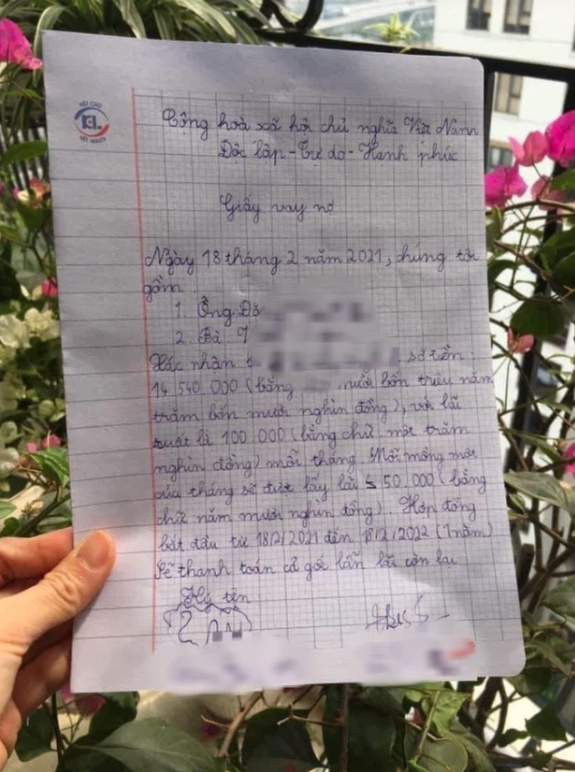 Cộng hoà xã hội chủ nghĩa Việt Nam
Độc lập - Tự do - Hạnh phúc
Giấy vay nợ
Ngày 18 tháng 2 năm 2021, chúng tôi
gồm
1. Ông Đỗ
2. Bà T
Xác nhận số tiền
14 540.000 (bằng mười bốn triệu năm
trăm bốn mươi nghìn đồng), với lãi
suất là 100.000 (bằng chữ một trăm
nghìn đồng) mỗi tháng. Mỗi mồng một
của tháng sẽ được lấy lãi 50.000 (bằng
chữ năm mươi nghìn đồng). Hợp đồng
bắt đầu từ 18/2/2021 đến 18/2/2022 (1 năm)
Sẽ thanh toán cả gốc lẫn lãi còn lại
Ký tên